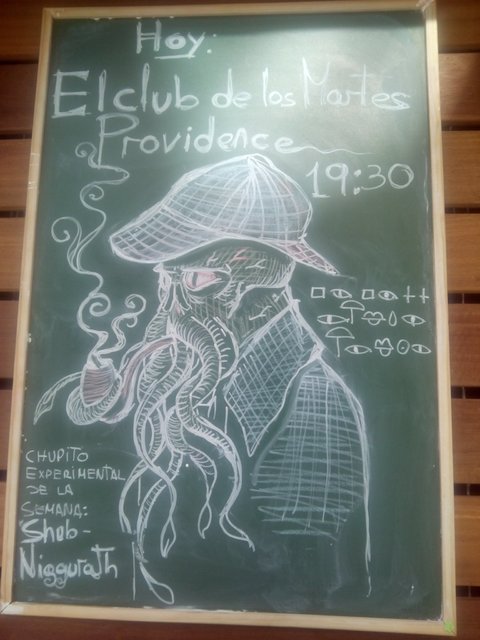 Hoy:
El club de los Martes
Providence
19:30
CHUPITO
EXPERIMENTAL
DE LA
SEMANA:
Shub-
Niggurath